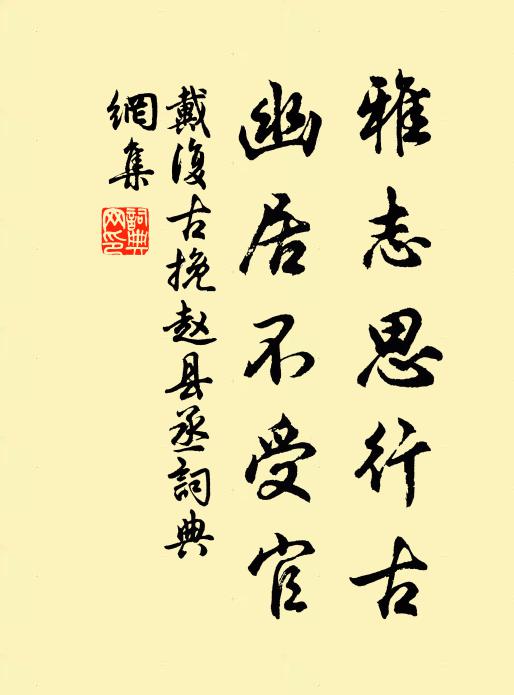 雅志思行古
幽居不受官
戴復古挽赵县丞詞典
網集
詞典网印